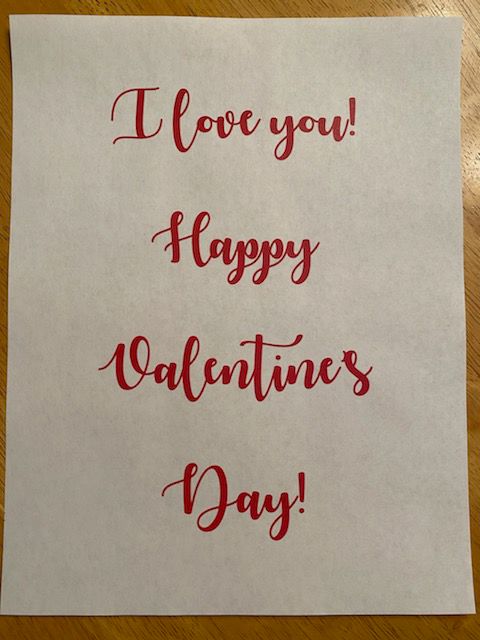 I love you!
Happy
Valentine's
Day!